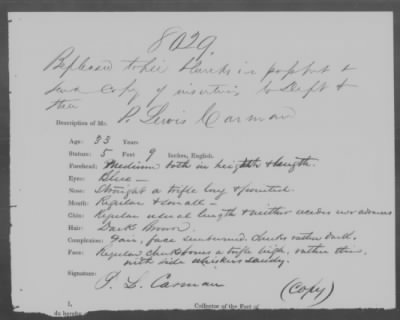 8029.
Be pleased to fill blanks in passport &
send copy of insertions to Dept &
Description of Mr. P. Lewis Carman
Age: 33 Years
Stature: 5 Feet 9 Inches, English.
Forehead: Medium both in height & length.
Eyes: Blue —
Nose: Straight a trifle long & pointed.
Mouth: Regular & small —
Chin: Regular usual length & neither recedes nor advances
Hair: Dark brown
Complexion: Fair, face sunburned. cheeks rather dark.
Face: Regular cheekbones a trifle high, rather thin,
with side whiskers sandy.
Signature:
P. L. Carman
(Copy)
I, Collector of the Port of
do hereby